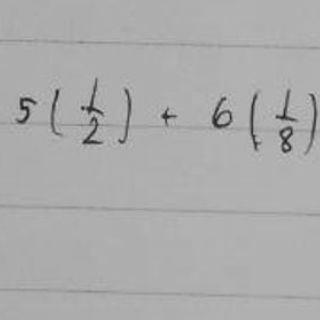 5 ( 1/2 ) + 6 ( 1/8 )